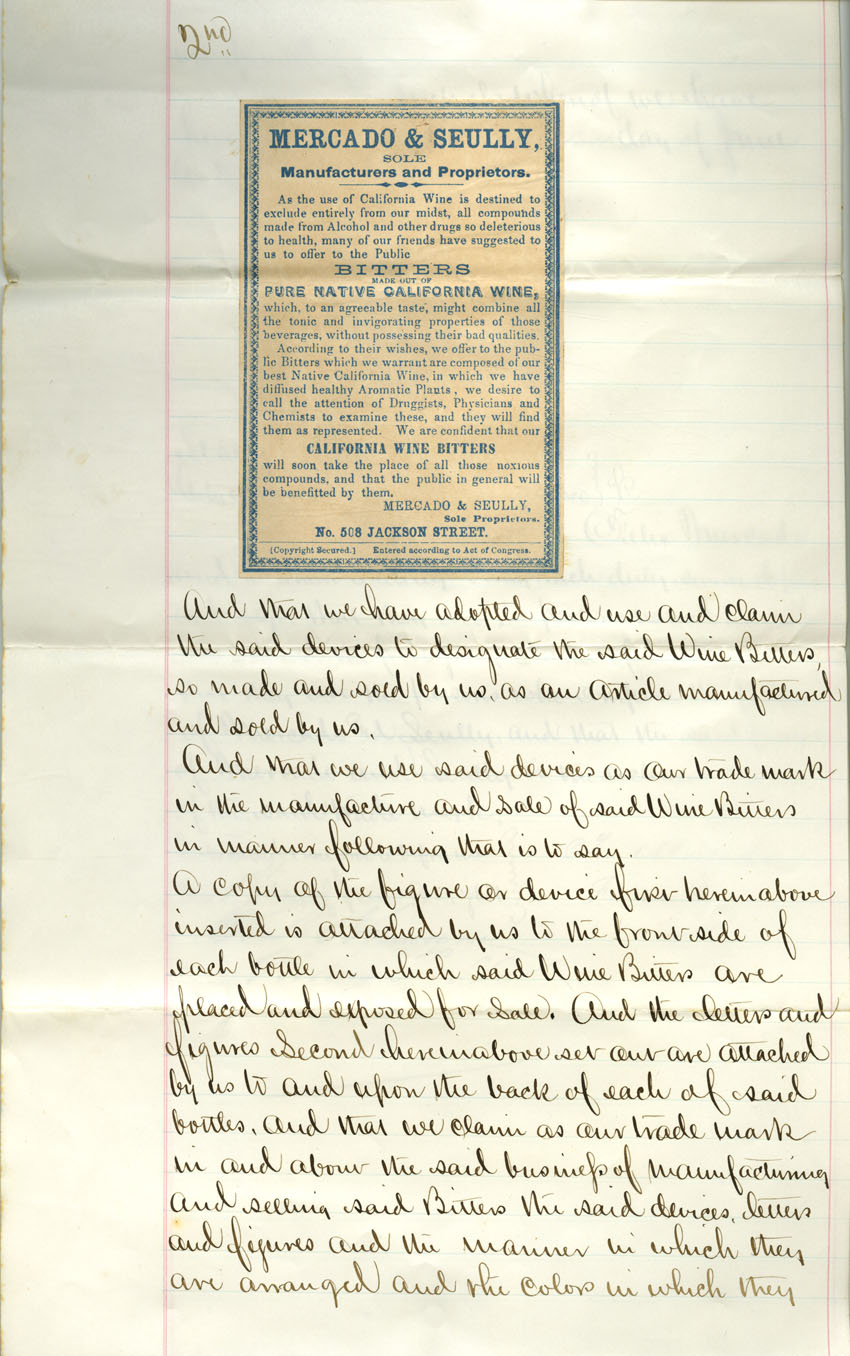 2nd
MERCADO & SEULLY,
SOLE
Manufacturers and Proprietors.
As the use of California Wine is destined to
exclude entirely from our midst, all compounds
made from Alcohol and other drugs so deleterious
to health, many of our friends have suggested to
us to offer to the Public
BITTERS
MADE OUT OF
PURE NATIVE CALIFORNIA WINE,
which, to an agreeable taste, might combine all
the tonic and invigorating properties of those
beverages, without possessing their bad qualities.
According to their wishes, we offer to the pub-
lic Bitters which we warrant are composed of our
best Native California Wine, in which we have
diffused healthy Aromatic Plants, we desire to
call the attention of Druggists, Physicians and
Chemists to examine these, and they will find
them as represented. We are confident that our
CALIFORNIA WINE BITTERS
will soon take the place of all those noxious
compounds, and that the public in general will
be benefitted by them.
MERCADO & SEULLY,
Sole Proprietors.
No. 508 JACKSON STREET.
[Copyright Secured.] Entered according to Act of Congress.
And that we have adopted and use and claim
the said devices to designate the said Wine Bitters,
so made and sold by us, as an article manufactured
and sold by us.
And that we use said devices as our trade mark
in the manufacture and sale of said Wine Bitters
in manner following that is to say.
A copy of the figure or device first hereinabove
inserted is attached by us to the front side of
each bottle in which said Wine Bitters are
placed and exposed for sale. And the letters and
figures second hereinabove set out are attached
by us to and upon the back of each of said
bottles, and that we claim as our trade mark
in and about the said business of manufacturing
and selling said Bitters the said devices, letters
and figures and the manner in which they
are arranged and the colors in which they